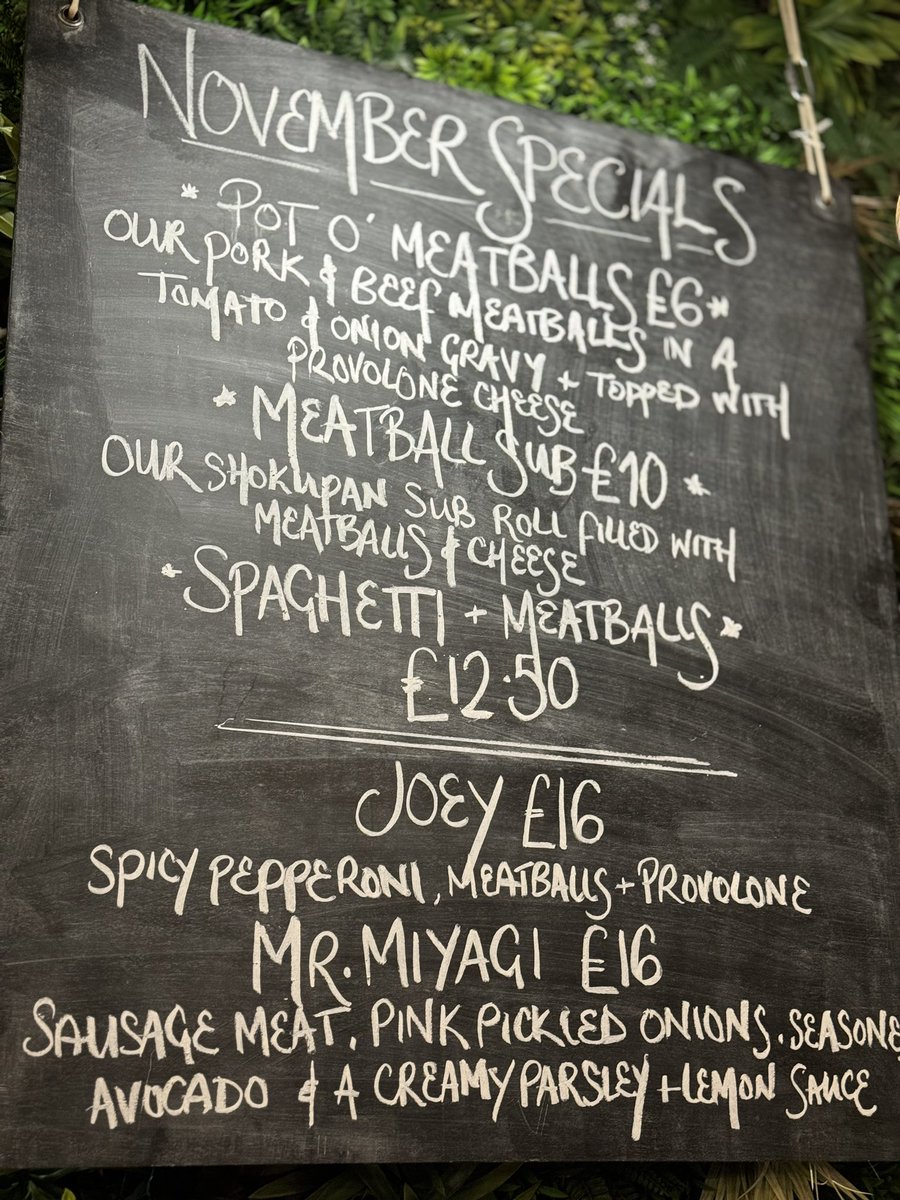 NOVEMBER SPECIALS
* POT O' MEATBALLS £6 *
OUR PORK & BEEF MEATBALLS IN A
TOMATO & ONION GRAVY + TOPPED WITH
PROVOLONE CHEESE
* MEATBALL SUB £10 *
OUR SHOKUPAN SUB ROLL FILLED WITH
MEATBALLS & CHEESE
* SPAGHETTI + MEATBALLS *
£12.50
JOEY £16
SPICY PEPPERONI, MEATBALLS + PROVOLONE
MR. MIYAGI £16
SAUSAGE MEAT, PINK PICKLED ONIONS, SEASONE
AVOCADO & A CREAMY PARSLEY + LEMON SAUCE